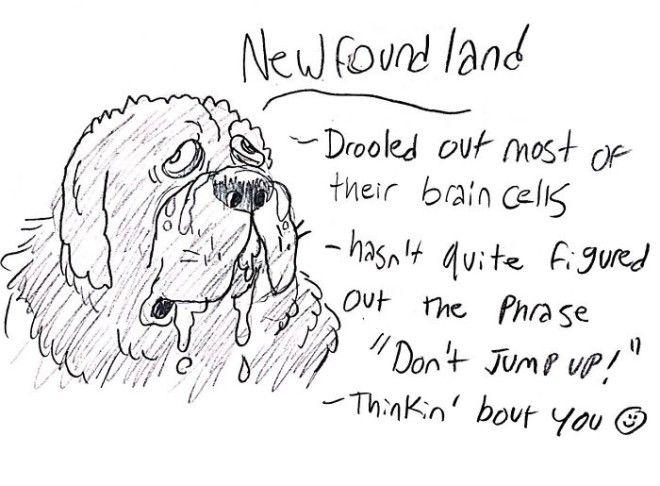 Newfoundland
- Drooled out most of
their brain cells
- hasn't quite figured
out the Phrase
"Don't Jump up!"
- Thinkin' bout you ☺